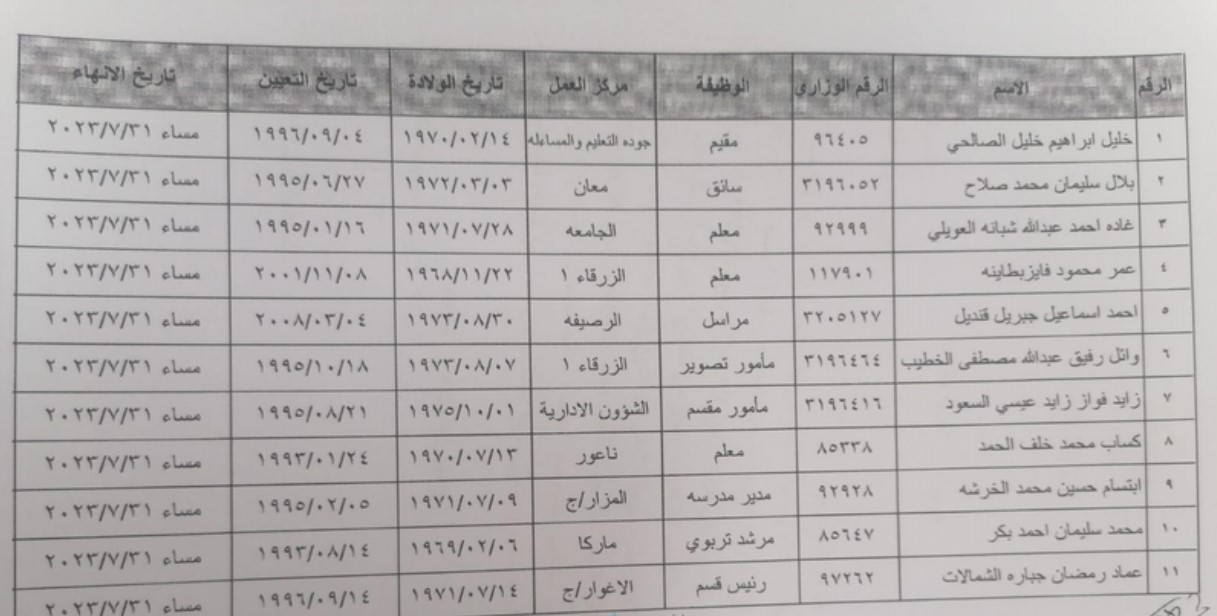 الرقم الاسم الرقم الوزاري الوظيفة مركز العمل تاريخ الولادة تاريخ التعيين تاريخ الانهاء
١ خليل ابراهيم خليل الصالحي ٩٦٤٠٥ مقيم جوده التعليم والمساءله ١٩٧٠/٠٢/١٤ ١٩٩٦/٠٩/٠٤ مساء ٢٠٢٣/٧/٣١
٢ بلال سليمان محمد صلاح ٣١٩٦٠٥٢ سائق معان ١٩٧٢/٠٣/٠٣ ١٩٩٥/٠٦/٢٧ مساء ٢٠٢٣/٧/٣١
٣ غاده احمد عبدالله شبانه العويلي ٩٢٩٩٩ معلم الجامعه ١٩٧١/٠٧/٢٨ ١٩٩٥/٠١/١٦ مساء ٢٠٢٣/٧/٣١
٤ عمر محمود فايزبطاينه ١١٧٩٠١ معلم الزرقاء ١ ١٩٦٨/١١/٢٢ ٢٠٠١/١١/٠٨ مساء ٢٠٢٣/٧/٣١
٥ احمد اسماعيل جبريل قنديل ٣٢٠٥١٢٧ مراسل الرصيفه ١٩٧٣/٠٨/٣٠ ٢٠٠٨/٠٣/٠٤ مساء ٢٠٢٣/٧/٣١
٦ وائل رفيق عبدالله مصطفى الخطيب ٣١٩٦٤٦٤ مأمور تصوير الزرقاء ١ ١٩٧٣/٠٨/٠٧ ١٩٩٥/١٠/١٨ مساء ٢٠٢٣/٧/٣١
٧ زايد فواز زايد عيسي السعود ٣١٩٦٤١٦ مأمور مقسم الشؤون الادارية ١٩٧٥/١٠/٠١ ١٩٩٥/٠٨/٢١ مساء ٢٠٢٣/٧/٣١
٨ كساب محمد خلف الحمد ٨٥٣٣٨ معلم ناعور ١٩٧٠/٠٧/١٣ ١٩٩٣/٠١/٢٤ مساء ٢٠٢٣/٧/٣١
٩ ابتسام حسين محمد الخرشه ٩٢٩٢٨ مدير مدرسه المزار/ج ١٩٧١/٠٧/٠٩ ١٩٩٥/٠٢/٠٥ مساء ٢٠٢٣/٧/٣١
١٠ محمد سليمان احمد بكر ٨٥٦٤٧ مرشد تربوي ماركا ١٩٦٩/٠٢/٠٦ ١٩٩٣/٠٨/١٤ مساء ٢٠٢٣/٧/٣١
١١ عماد رمضان جباره الشمالات ٩٧٢٦٢ رئيس قسم الاغوار/ج ١٩٧١/٠٧/١٤ ١٩٩٦/٠٩/١٤ مساء ٢٠٢٣/٧/٣١